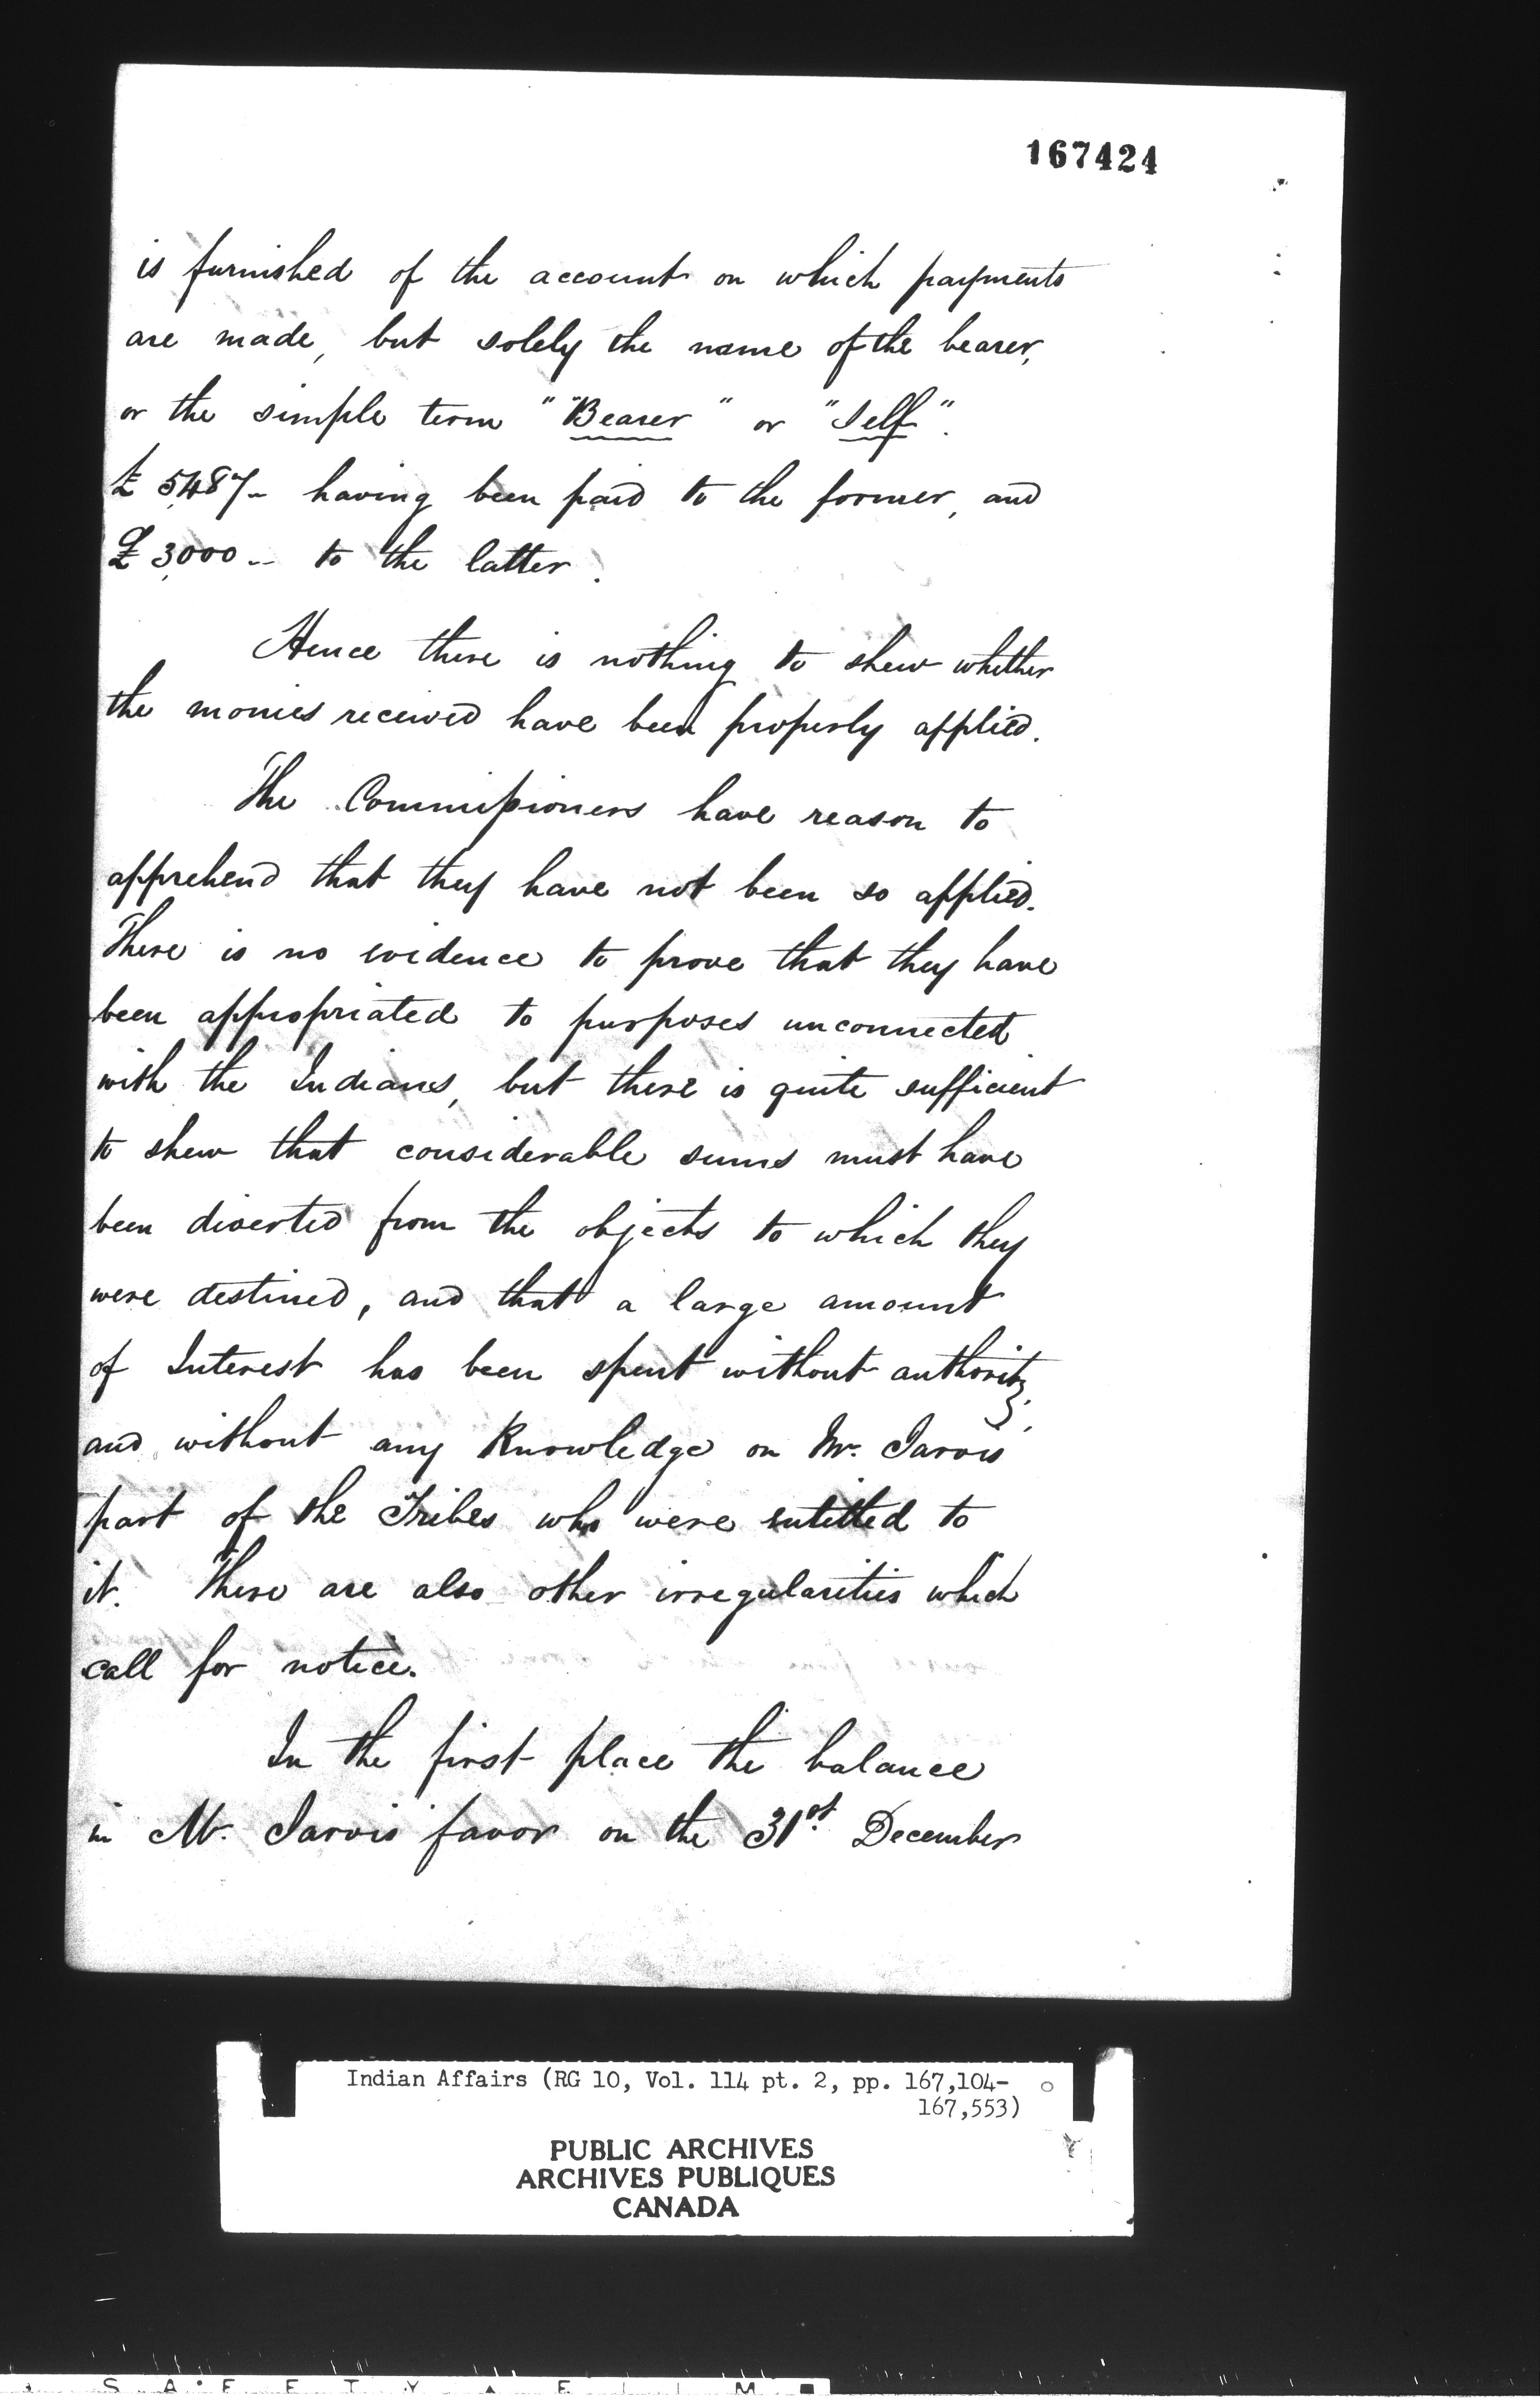 167424
is furnished of the account on which payments
are made, but solely the name of the bearer,
or the simple term "Bearer" or "Self".
£5,487- having been paid to the former, and
£3,000-- to the latter.
Hence there is nothing to shew whether
the monies received have been properly applied.
The Commissioners have reason to
apprehend that they have not been so applied.
There is no evidence to prove that they have
been appropriated to purposes unconnected
with the Indians, but there is quite sufficient
to shew that considerable sums must have
been diverted from the objects to which they
were destined, and that a large amount
of Interest has been spent without authority;
and without any Knowledge on Mr. Jarvis'
part of the Tribes who were entitled to
it. There are also other irregularities which
call for notice.
In the first place the balance
in Mr. Jarvis' favor on the 31st. December
Indian Affairs (RG 10, Vol. 114 pt. 2, pp. 167,104-
167,553)
PUBLIC ARCHIVES
ARCHIVES PUBLIQUES
CANADA